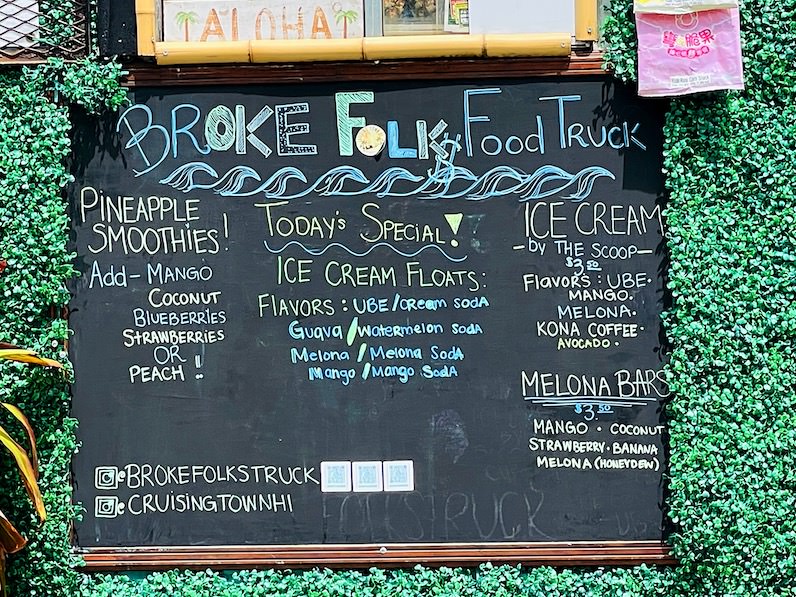 ALOHA
BROKE FOLK Food TRUCK
PINEAPPLE
SMOOTHIES!
Add - MANGO
COCONUT
BLUEBERRIES
STRAWBERRIES
OR
PEACH !!
TODAY'S SPECIAL!
ICE CREAM FLOATS:
FLAVORS : UBE/CREAM SODA
Guava / Watermelon SODA
Melona / Melona SODA
Mango / Mango SODA
ICE CREAM
-by THE SCOOP-
$3.50
FLAVORS : UBE.
MANGO.
MELONA.
KONA COFFEE.
AVOCADO.
MELONA BARS
$3.50
MANGO • COCONUT
STRAWBERRY • BANANA
MELONA (HONEYDEW)
@BROKEFOLKSTRUCK
@CRUISINGTOWNHI
FOLKSTRUCK